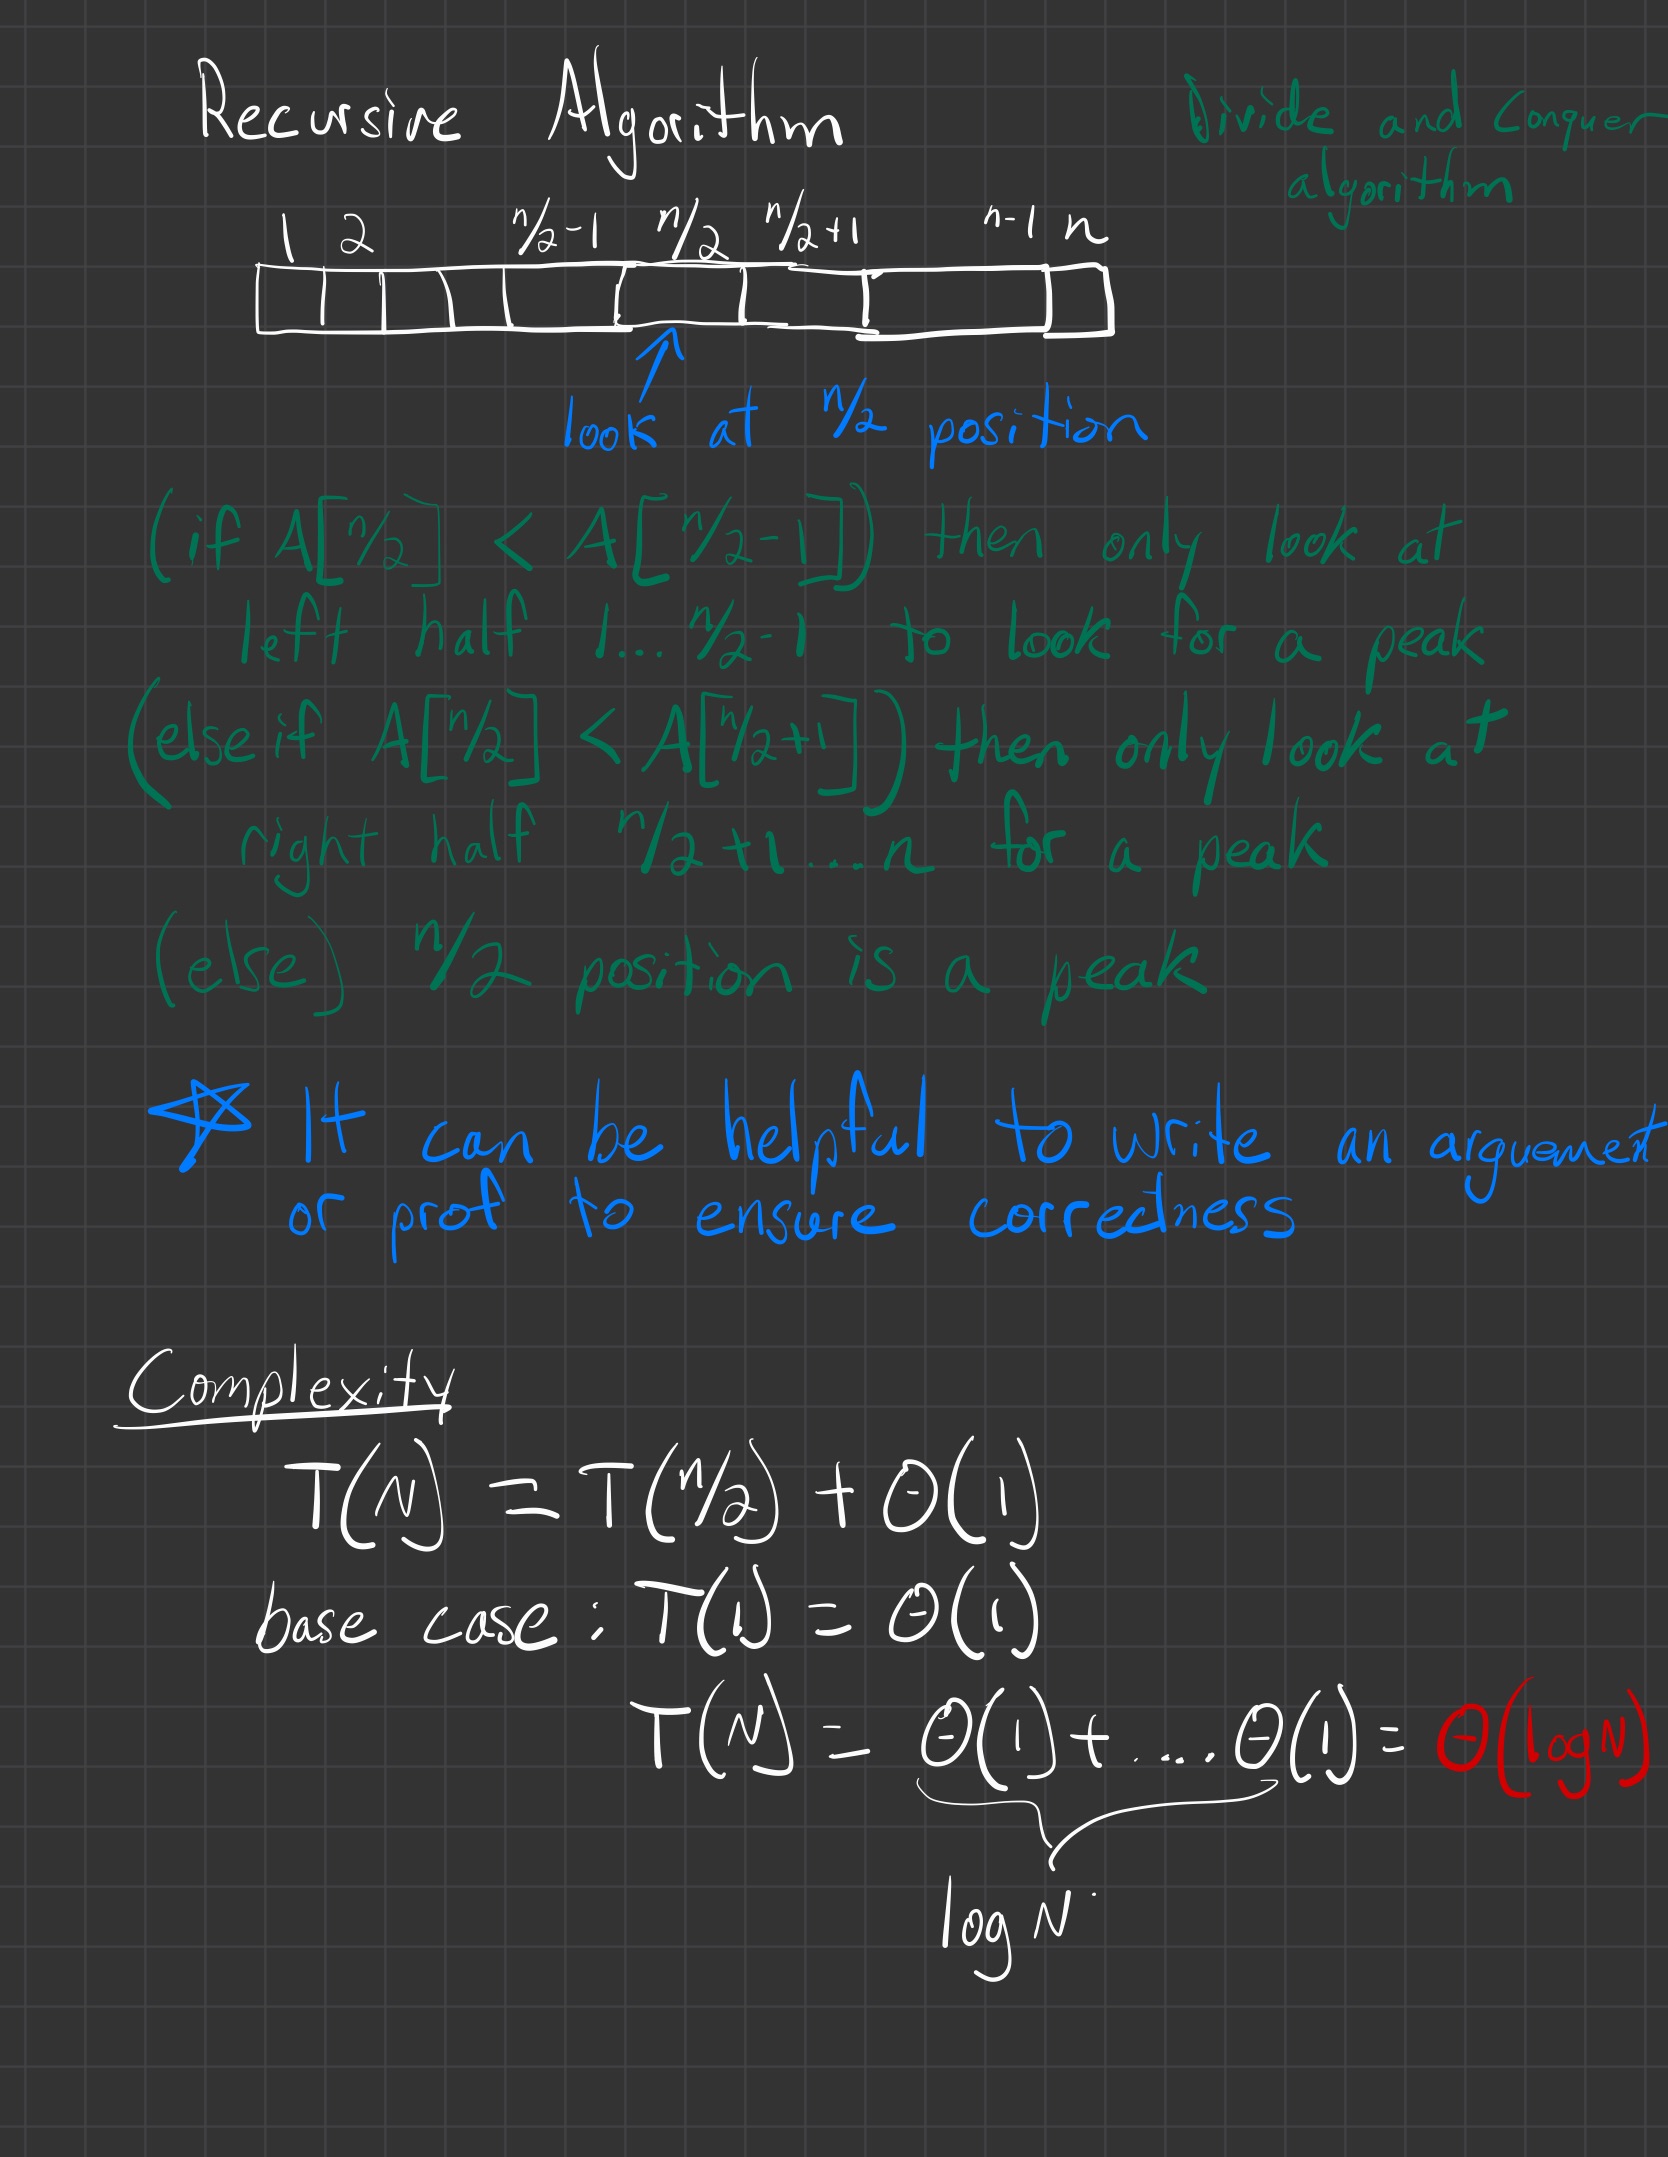 Recursive Algorithm
Divide and Conquer
algorithm
1 2 n/2-1 n/2 n/2+1 n-1 n
look at n/2 position
(if A[n/2] < A[n/2-1]) then only look at
left half 1... n/2-1 to look for a peak
(else if A[n/2] < A[n/2+1]) then only look at
right half n/2+1...n for a peak
(else) n/2 position is a peak
☆ It can be helpful to write an arguement
or prof to ensure correctness
Complexity
T(N) = T(n/2) + Θ(1)
base case: T(1) = Θ(1)
T(N) = Θ(1)+....Θ(1) = Θ(log N)
log N